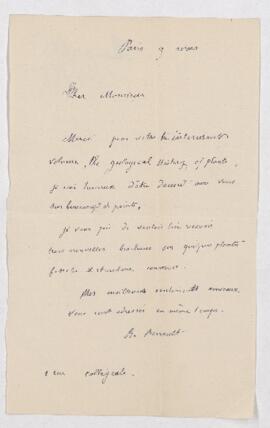 Paris 9 mars
Cher Monsieur
Merci pour votre très intéressant
volume, The geological History of plants,
je suis heureux d'être d'accord avec vous
sur beaucoup de points,
je vous prie de vouloir bien recevoir
trois nouvelles brochures sur quelques plantes
fossiles à structure conservée.
Mes meilleurs sentiments
vous sont adressés en même temps.
B. Renault
1 rue